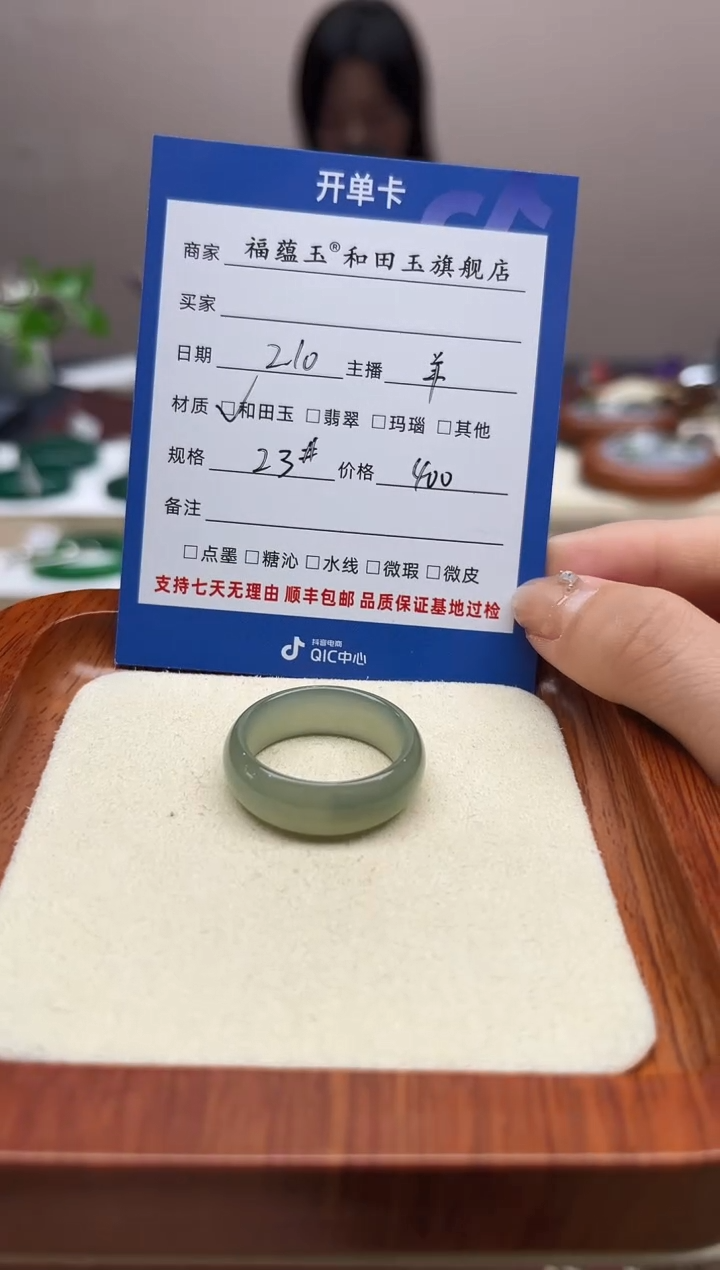 开单卡
商家 福蕴玉®和田玉旗舰店
买家
日期 210 主播 羊
材质 ☑和田玉 □翡翠 □玛瑙 □其他
规格 23# 价格 400
备注
□点墨 □糖沁 □水线 □微瑕 □微皮
支持七天无理由 顺丰包邮 品质保证基地过检
抖音电商
QIC中心